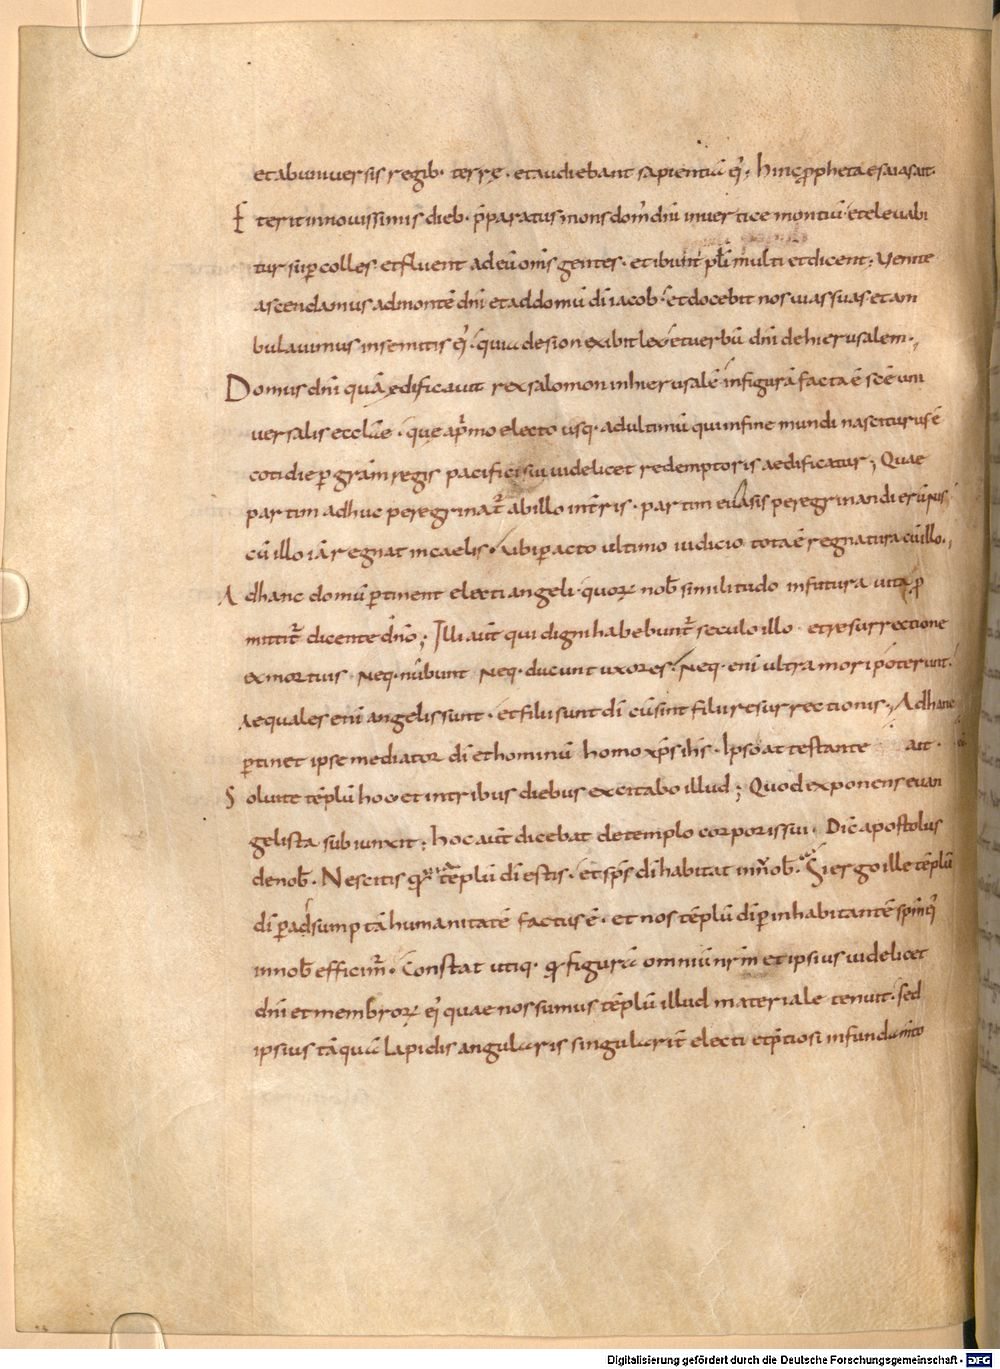 et ab universis regib· terrę· et audiebant sapientiā ei᷒; hinc ꝓpheta esaias ait·
Et erit in novissimis dieb· p̄paratus mons dom᷒ dn̄i in vertice montiū· et elevabi
tur suꝑ colles· et fluent ad eū om̄s gentes· et ibunt pl̄i multi et dicent; Venite
ascendamus ad montē dn̄i et ad domū dī iacob· et docebit nos vias suas· et am
bulavimus in semitis ei᷒· quia de sion exibit lex et verbū dn̄i de hierusalem·,
Domus dn̄i quā ędificavit rex salomon in hierusalē in figurā facta ē scē uni
versalis ecclae· que a pͥmo electo usq· ad ultimū qui in fine mundi nasciturus ē
cotidie ꝑ gram̄ regis pacifici sui videlicet redemptoris aedificatur; Quae
partim adhuc peregrinat᷒ ab illo in tr̄ris· partim evasis peregrinandi erūpnis
cū illo iā regnat in caelis· ubi peracto ultimo iudicio tota ē regnatura cū illo·,
Ad hanc domū ꝑtinent electi angeli· quoꝝ nob̄ similitudo in futura vita ꝓ
mittit᷒ dicente dn̄o; Illi aut̄ qui digni habebunt᷒ seculo illo· et resurrectione
ex mortuis· Neq· nubunt Neq· ducunt uxores· Neq· enī ultra mori poterunt·
Aequales enī angelis sunt· et filii sunt dī cū sint filii resurrectionis·, Ad hanc
ꝑtinet ipse mediator dī et hominū homo xp̄s ih̄s· Ipso at testante ait·
Solvite tēplū hoc et in tribus diebus excitabo illud; Quod exponens evan
gelista subiunxit; hoc aut̄ dicebat de templo corporis sui· Dic̄ apostolus
de nob̄· Nescitis qꝫ tēplū dī estis· et sp̄s dī habitat in vob̄· Si ergo ille tēplū
dī ꝑ adsumptā humanitatē factus ē· et nos tēplū dī ꝑ inhabitantē spm̄ ei᷒
in nob̄ efficim᷒· Constat utiq· qꝫ figurā omniū nr̄m et ipsius videlicet
dn̄i et membroꝝ ei᷒ quae nos sumus tēplū illud materiale tenuit· sed
ipsius tāquā lapidis angularis singularit̄ electi et p̄tiosi in fundam̄to